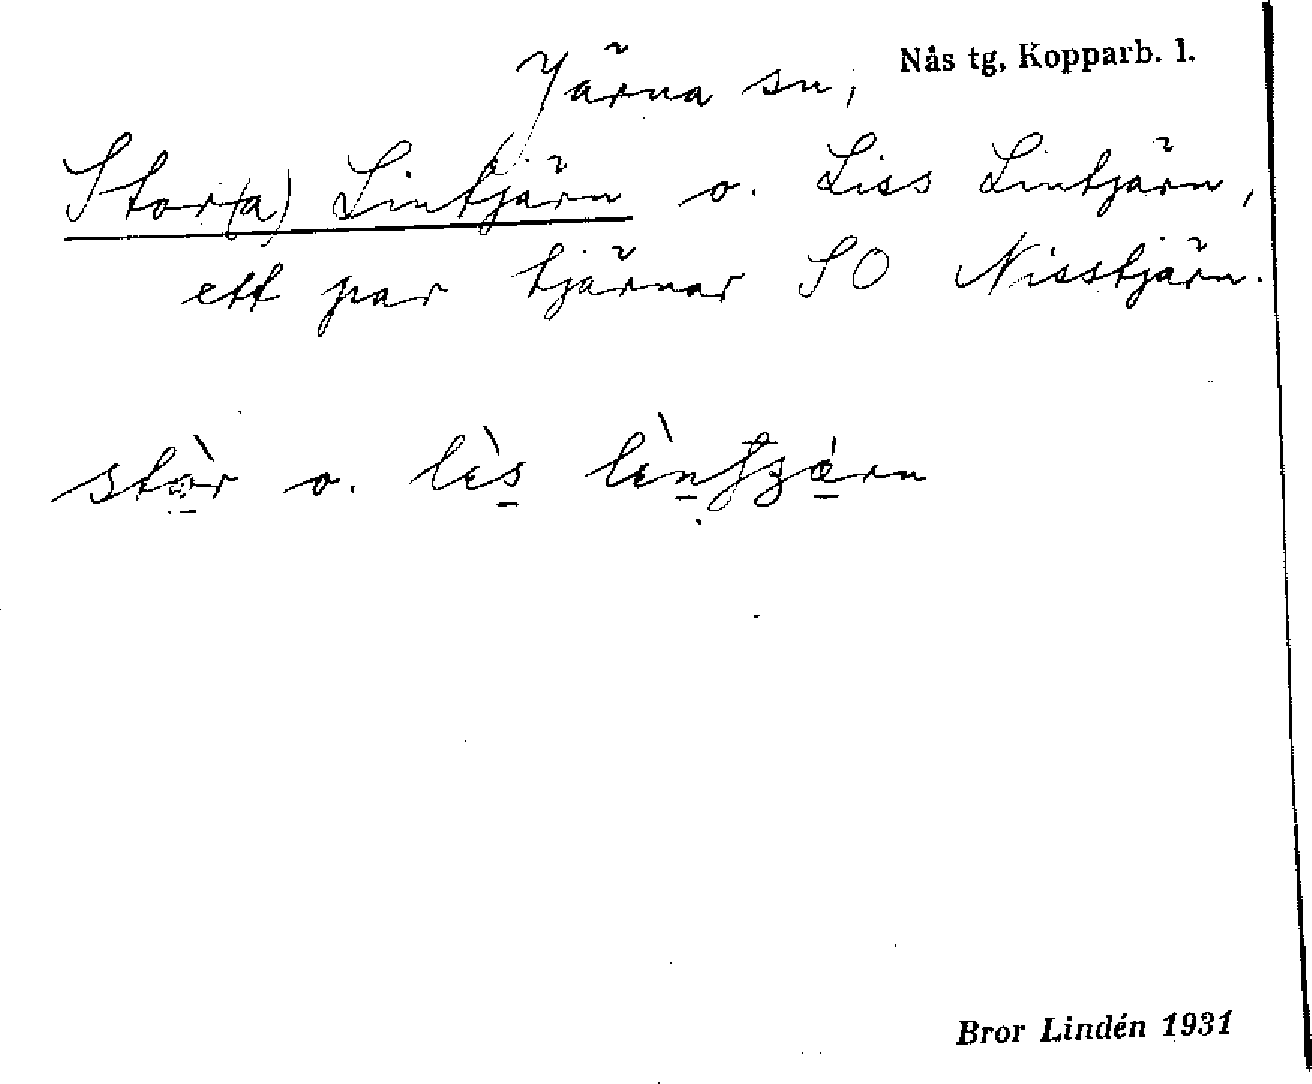 Järna sn, Nås tg, Kopparb. l.
Stor(a) Lintjärn o. Liss Lintjärn,
ett par tjärnar SO Nisstjärn.
stòr o. lìs
Bror Lindén 1931